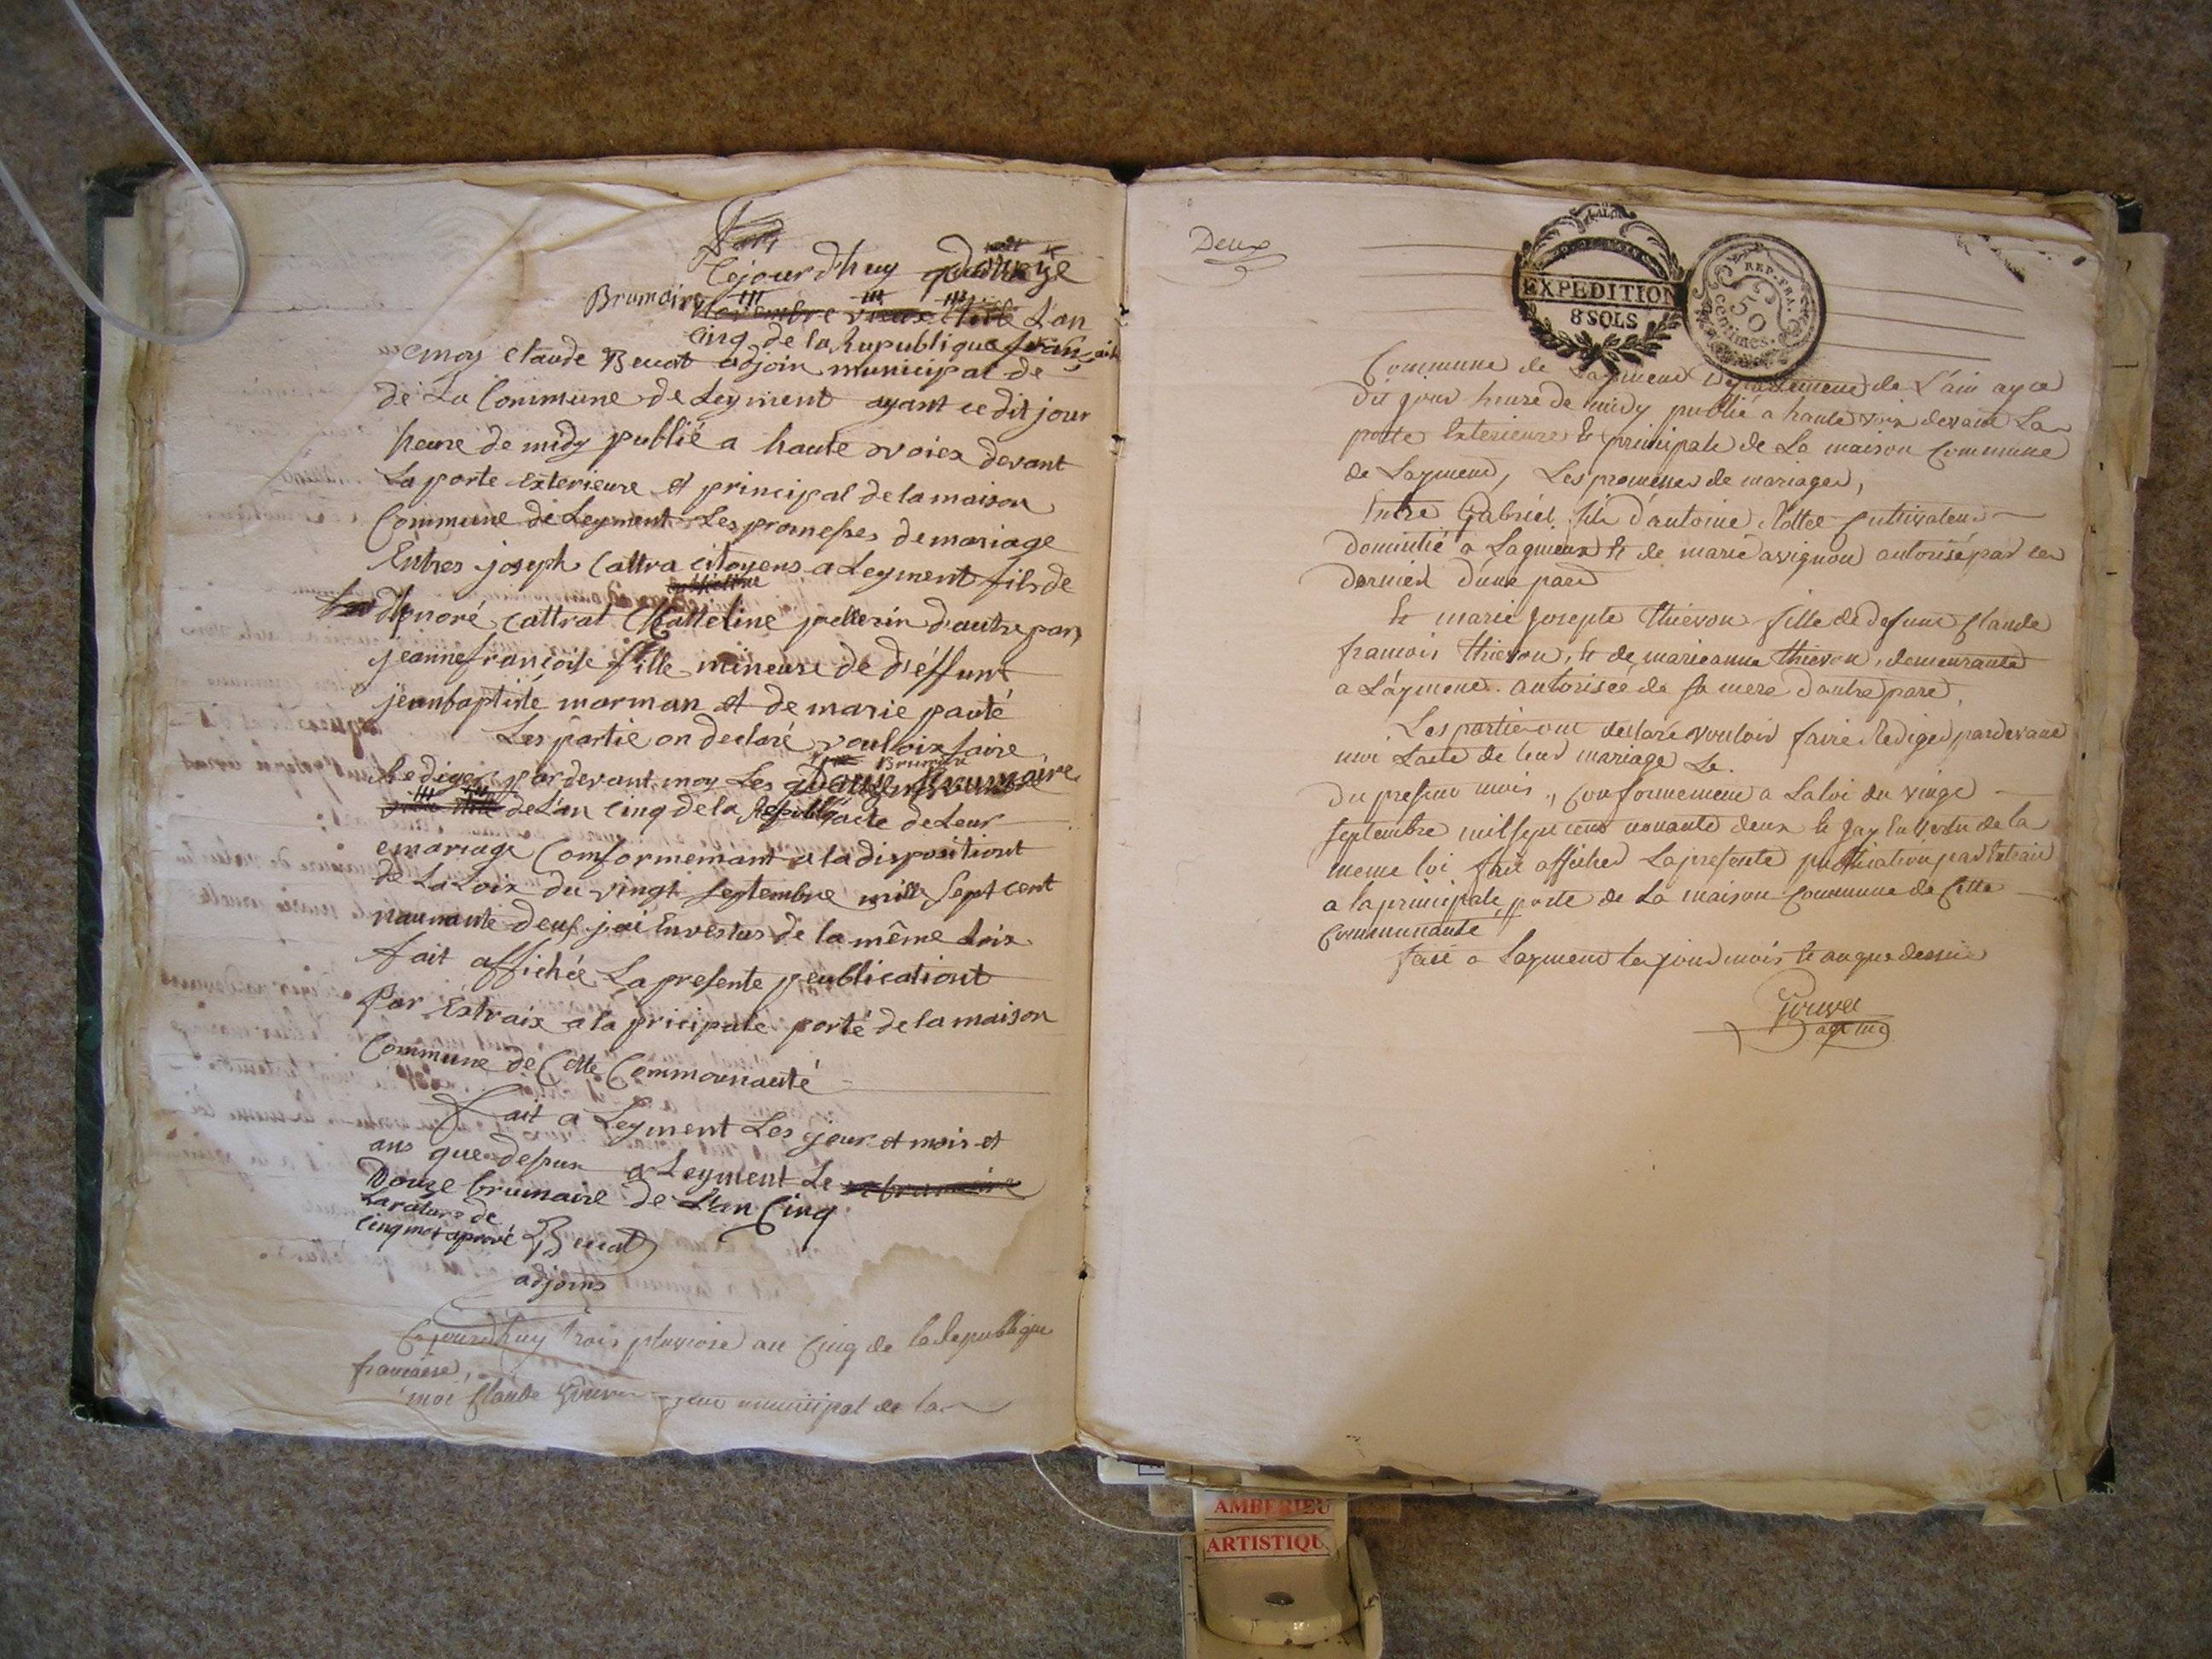 Cejourd'huy douze
Brumaire L'an
Cinq de la Republique francaise
moy Claude Bucat adjoin municipal de
de La Commune de Leyment ayant ce dit jour
heure de midy publié a haute voiex devant
La porte Exterieure et principal de la maison
Commune de Leyment Les promesses de mariage
Entres joseph Cattra citoyens a Leyment fils de
d'honoré Cattrat Catteline pellerin d'autre part
jeanne francoise fille mineure de d'éffunt
jeanbaptiste morman et de marie pauté
Les partie on declaré vouloix faire
Rediger par devant moy Les Brumaire
de L'an Cinq de la Republ acte de Leur
mariage Conformemant a la dispositiont
de La Loix du vingt septembre mille sept cent
naunante deuf jai Envestus de la même Loix
fait affichée La presente peublicationt
Par Extraix a la pricipale porté de la maison
Commune de Cette Commounauté
fait a Leyment Les jour et mois et
ans que desus a Leyment Le
Douze brumaire de L'an Cinq
La rature de
Cinq mot aprové Bucat
adjoins
Cejourd'huy trois pluviose an Cinq de la Republique
francaise,
moi Claude municipal de la
Deux
EXPEDITION
8 SOLS
REP. FRA.
50
Centimes.
Commune de Layment Departement de L'ain ay ce
Dit jour heure de midy publié a haute voix devant La
porte Exterieure et principale de La maison Commune
de Layment, Les promesses de mariages,
Entre Gabriel fils d'antoine Nottet Cultivateur
Domicilié a Lagnieux et de marie avignon autorisé par ces
dernier d'une part
Et marie Josepte Thievon fille de defunt Claude
francois thievon, et de marieanne thievon, demeurante
a Layment. autorisée de sa mere d'autre part,
Les partie ont declaré vouloir faire Rediger pardevant
moi L'acte de leur mariage Le
Du present mois, Conformement a La loi du vingt
septembre mil sept cent nonante deux et jay En vertu de la
meme loi fait afficher La presente publication par Extrait
a la principale porte de La maison Commune de Cette
Communauté
fait a Layment les jour mois et an que dessus
AMBERIEU
ARTISTIQU